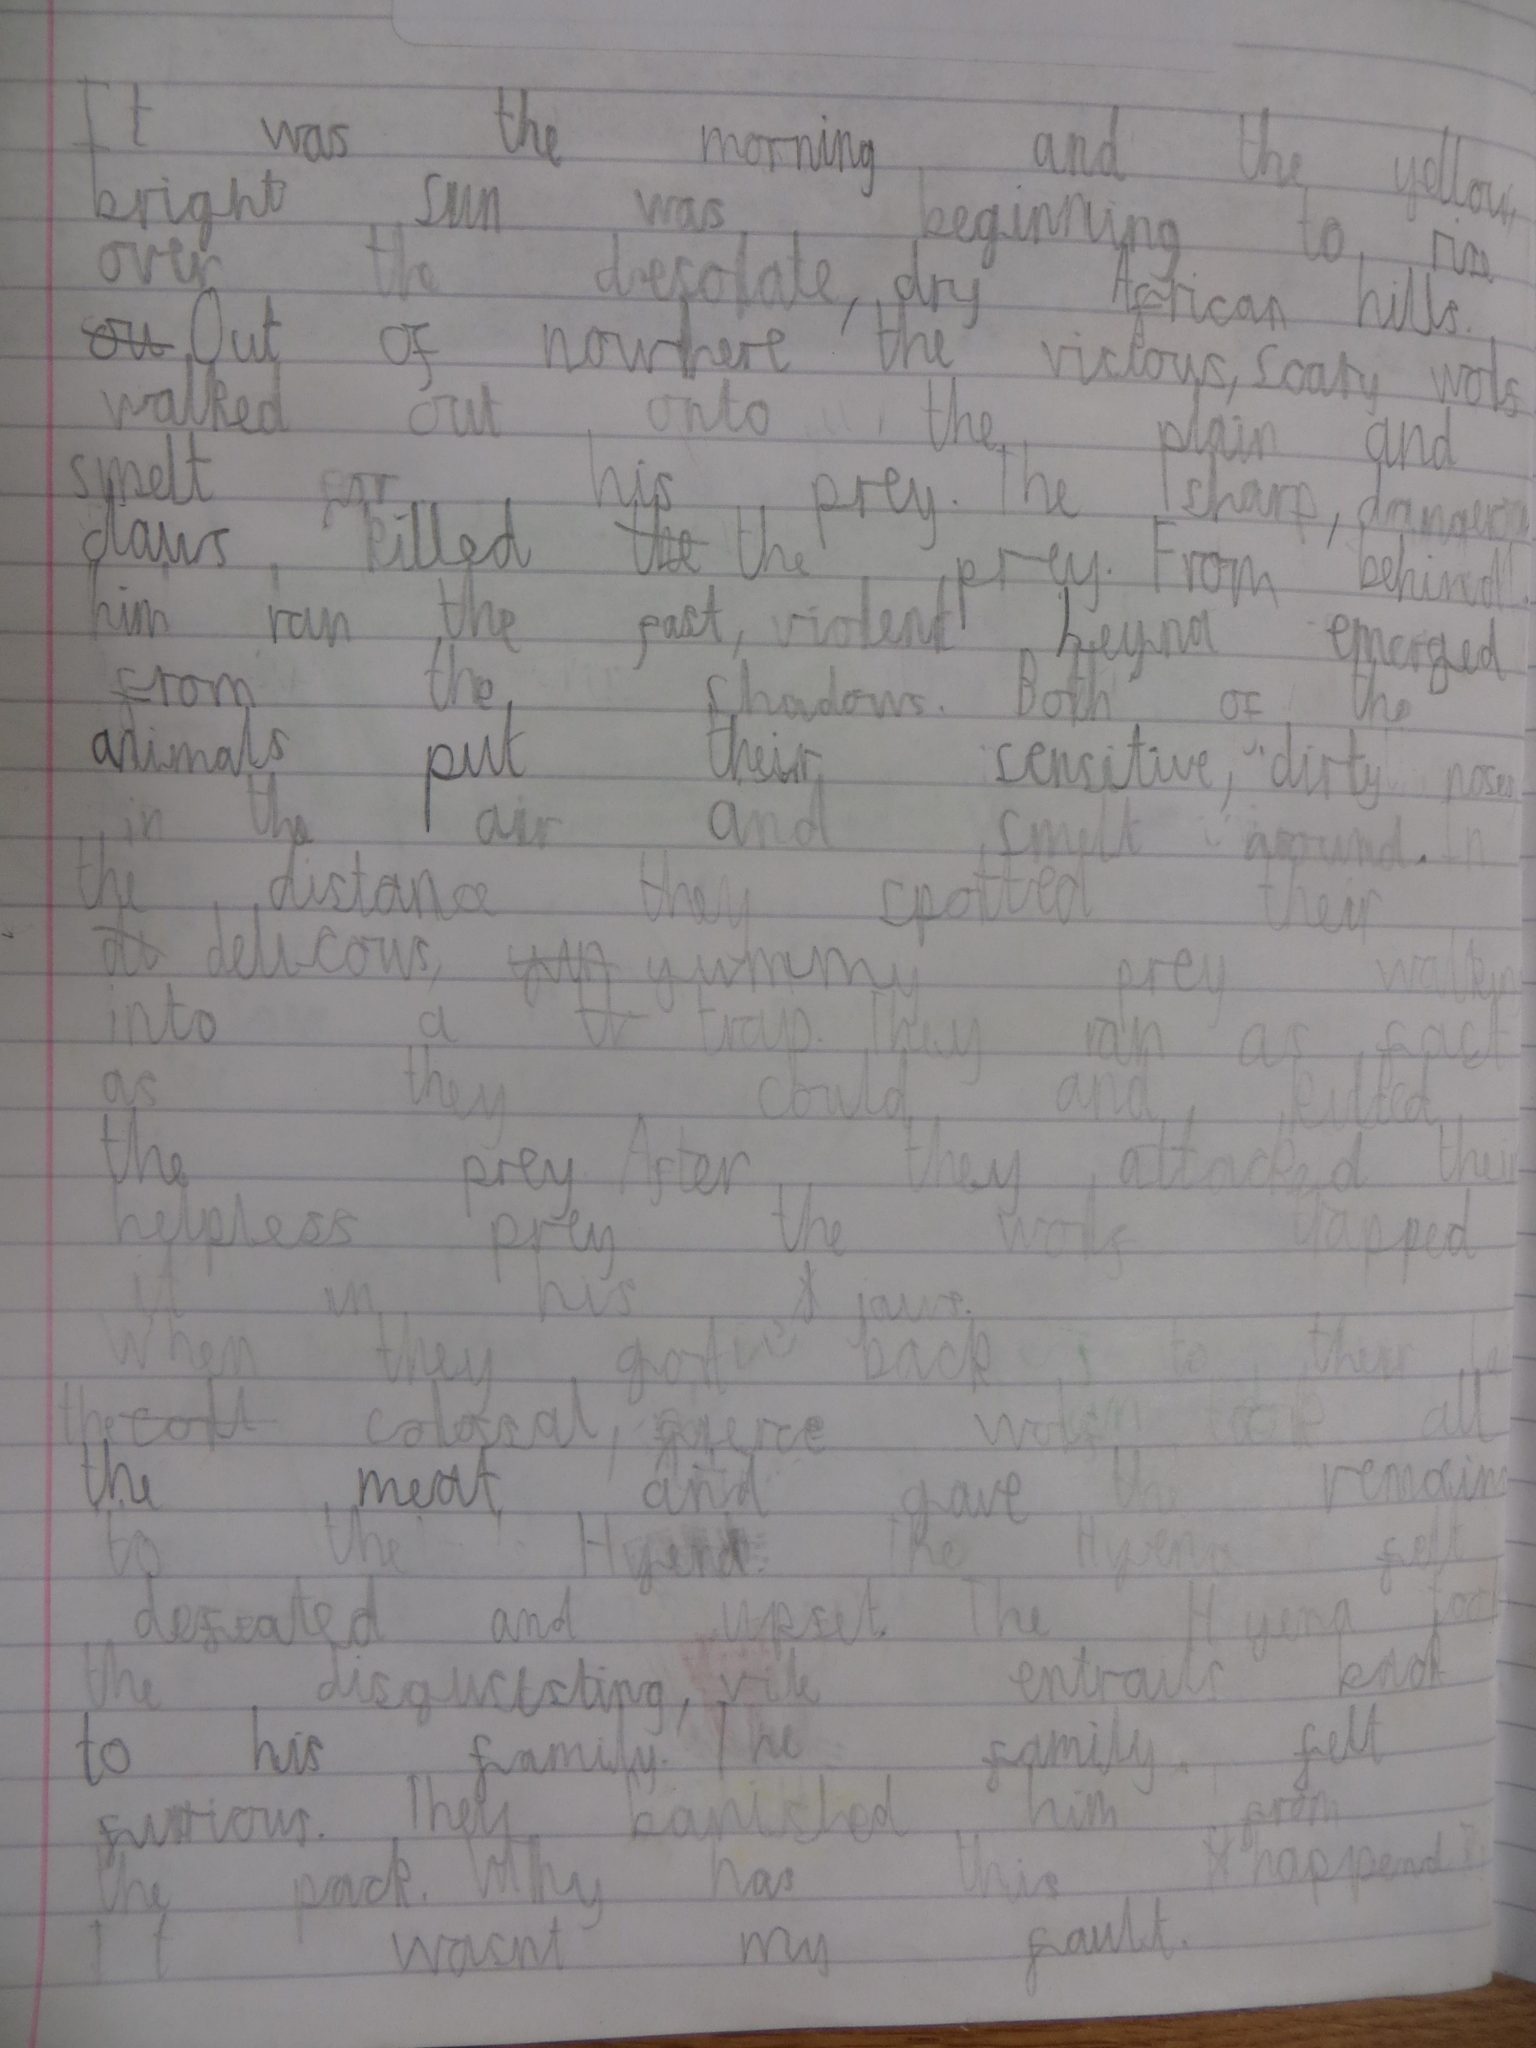 It was the morning and the yellow,
bright sun was beginning to rise
over the desolate, dry African hills.
ou Out of nowhere the vicious, scary wolf
walked out onto the plain and
smelt for his prey. The sharp, dangerous
claws killed the the prey. From behind
him ran the fast, violent heyna emerged
from the shadows. Both of the
animals put their sensitive, dirty noses
in the air and smelt around. In
the distance they spotted their
de delicous, yum yummy prey walking
into a tr trap. They ran as fast
as they could and killed
the prey. After they attacked their
helpless prey the wolf trapped
it in his jaws.
When they got back to their
the colossal, fierce wolf took all
the meat and gave the remains
to the Hyena. The Hyena felt
defeated and upset. The Hyena took
the disgusting, vile entrails back
to his family. The family felt
furious. They banished him from
the pack. Why has this happend?
It wasnt my fault.